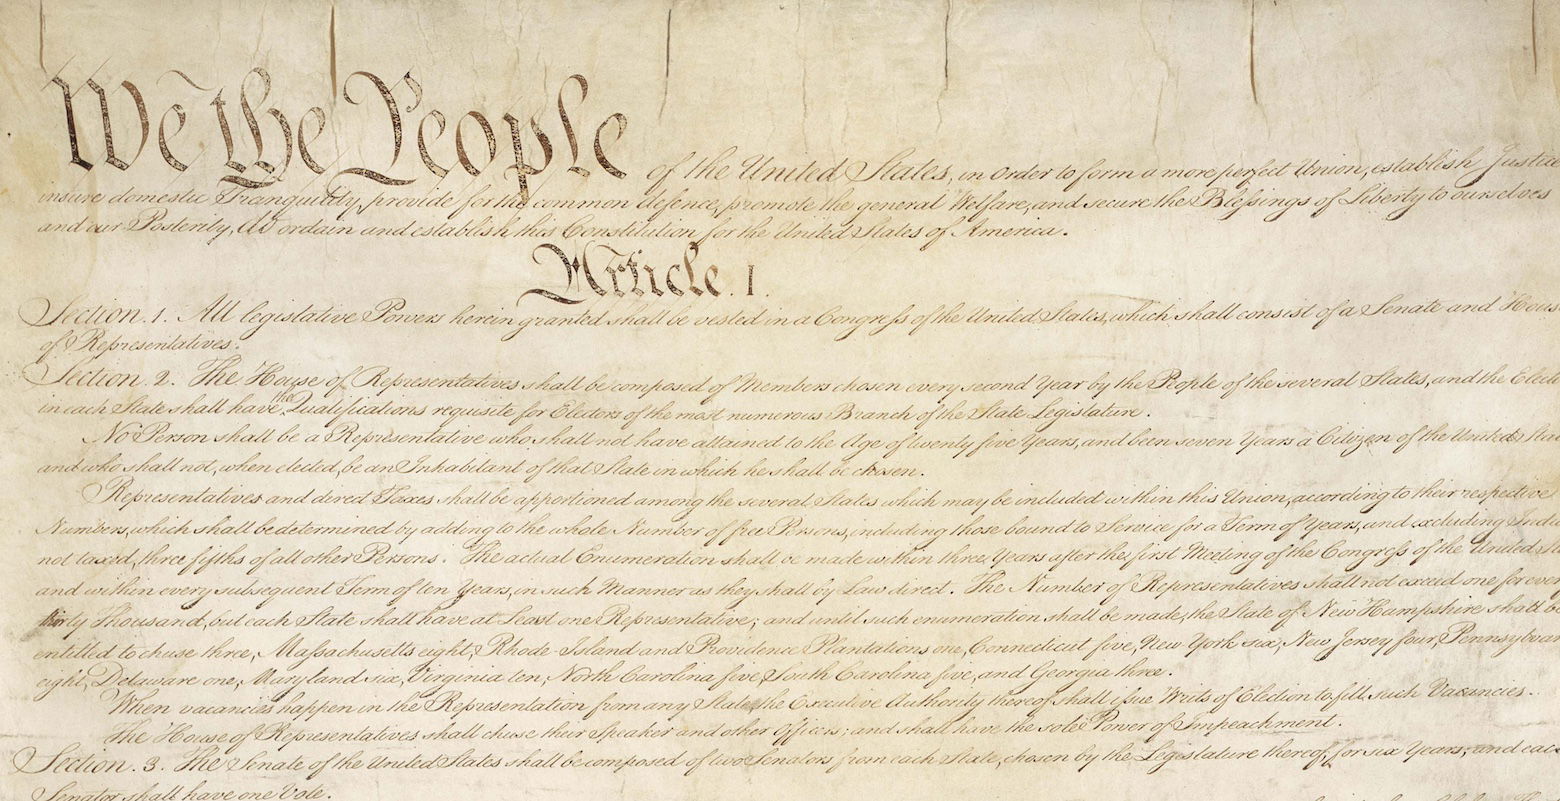 We the People of the United States, in Order to form a more perfect Union, establish Justice
insure domestic Tranquility, provide for the common defence, promote the general Welfare, and secure the Blessings of Liberty to ourselves
and our Posterity, do ordain and establish this Constitution for the United States of America.
Article. I.
Section. 1. All legislative Powers herein granted shall be vested in a Congress of the United States, which shall consist of a Senate and Hous
of Representatives.
Section. 2. The House of Representatives shall be composed of Members chosen every second Year by the People of the several States, and the Elect
in each State shall have the Qualifications requisite for Electors of the most numerous Branch of the State Legislature.
No Person shall be a Representative who shall not have attained to the Age of twenty five Years, and been seven Years a Citizen of the United
and who shall not, when elected, be an Inhabitant of that State in which he shall be chosen.
Representatives and direct Taxes shall be apportioned among the several States which may be included within this Union, according to their respective
Numbers, which shall be determined by adding to the whole Number of free Persons, including those bound to Service for a Term of Years, and excluding India
not taxed, three fifths of all other Persons. The actual Enumeration shall be made within three Years after the first Meeting of the Congress of the United
and within every subsequent Term of ten Years, in such Manner as they shall by Law direct. The Number of Representatives shall not exceed one for ever
thirty Thousand, but each State shall have at Least one Representative; and until such enumeration shall be made, the State of New Hampshire shall be
entitled to chuse three, Massachusetts eight, Rhode-Island and Providence Plantations one, Connecticut five, New York six, New Jersey four, Pennsylvan
eight, Delaware one, Maryland six, Virginia ten, North Carolina five, South Carolina five, and Georgia three.
When vacancies happen in the Representation from any State, the Executive Authority thereof shall issue Writs of Election to fill such Vacancies.
The House of Representatives shall chuse their Speaker and other Officers; and shall have the sole Power of Impeachment.
Section. 3. The Senate of the United States shall be composed of two Senators from each State, chosen by the Legislature thereof, for six Years; and eac
Senator shall have one Vote.